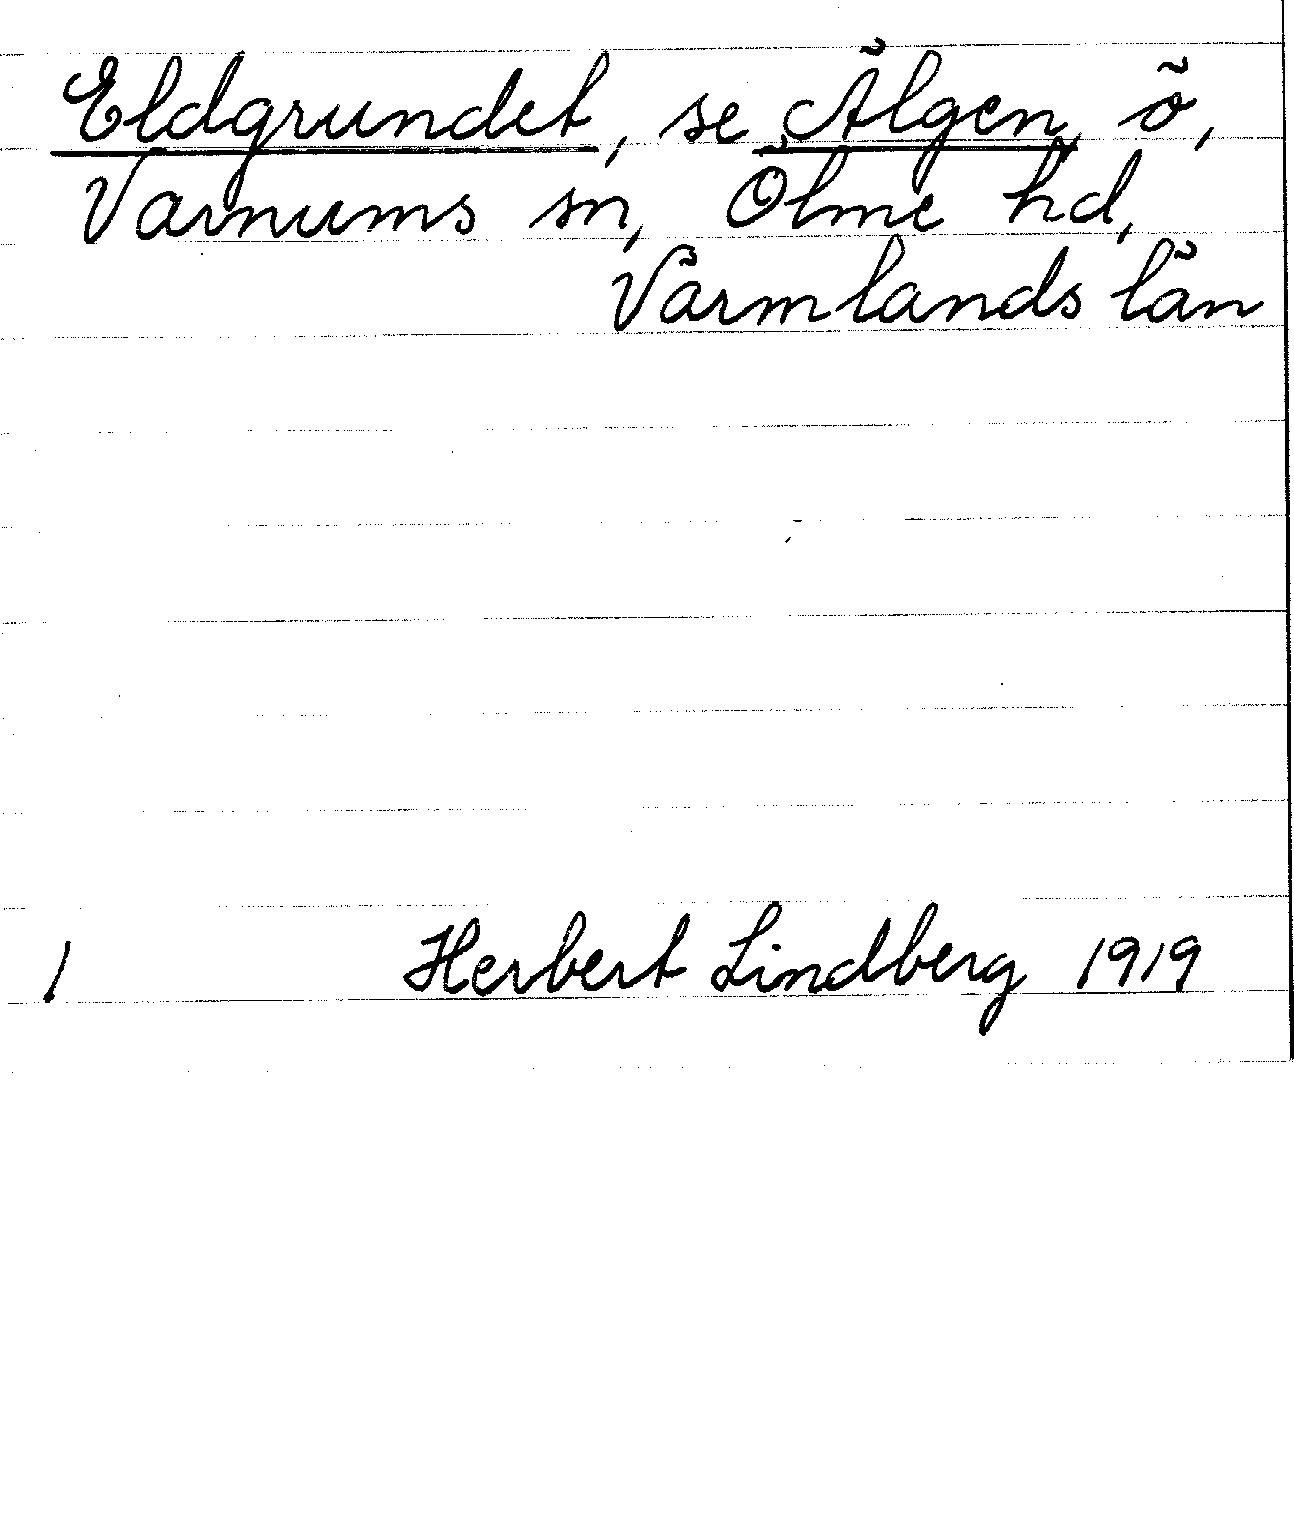 Eldgrundet, se Älgen, ö,
Varnums sn, Ölme hd,
Värmlands län
1 Herbert Lindberg 1919